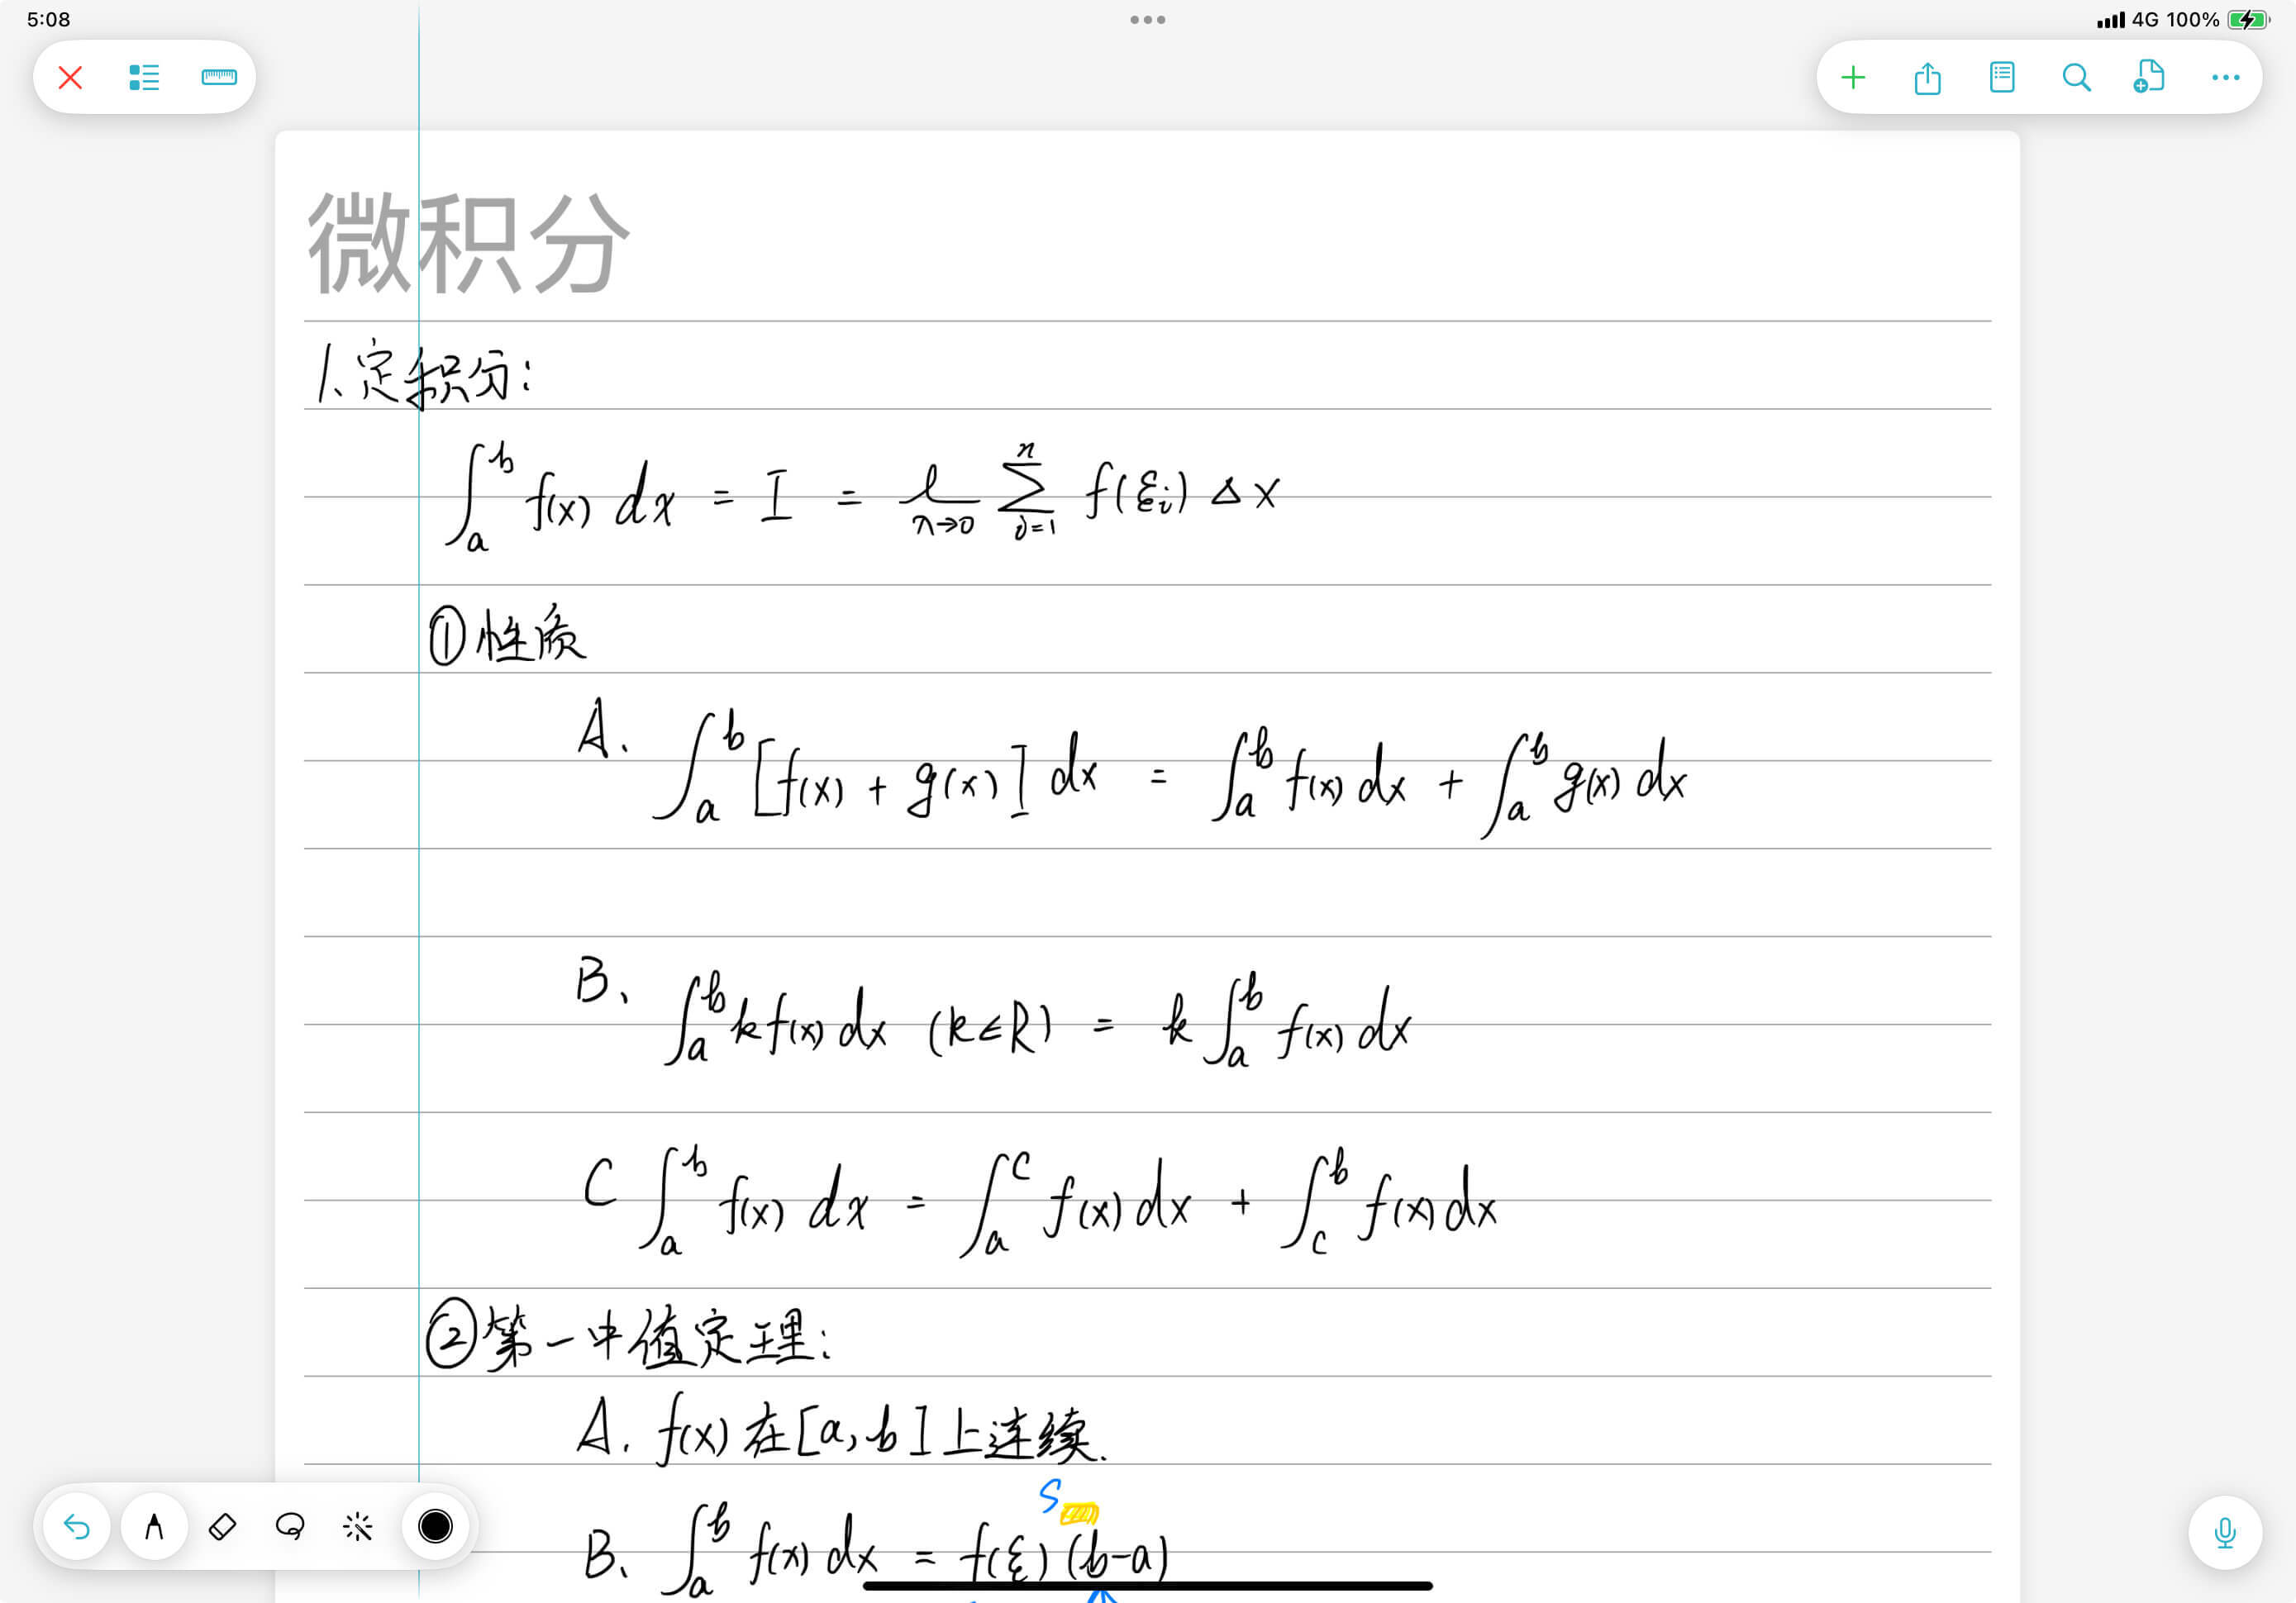 5:08
4G 100%
微积分
1.定积分:
∫_a^b f(x) dx = I = l_{λ→0} ∑_{i=1}^n f(ξ_i) Δx
①性质
A. ∫_a^b [f(x) + g(x)] dx = ∫_a^b f(x) dx + ∫_a^b g(x) dx
B、 ∫_a^b k f(x) dx (k∈R) = k ∫_a^b f(x) dx
C ∫_a^b f(x) dx = ∫_a^c f(x) dx + ∫_c^b f(x) dx
②第一中值定理:
A. f(x) 在 [a, b] 上连续.
S
B、 ∫_a^b f(x) dx = f(ξ) (b-a)